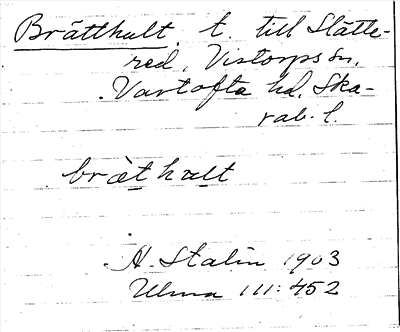 Brätthult. t. till Slätte-
red, Vistorps sn,
Vartofta hd. Ska-
rab. l.
bràt hult
H. Stalin 1903
Ulma 111: 452